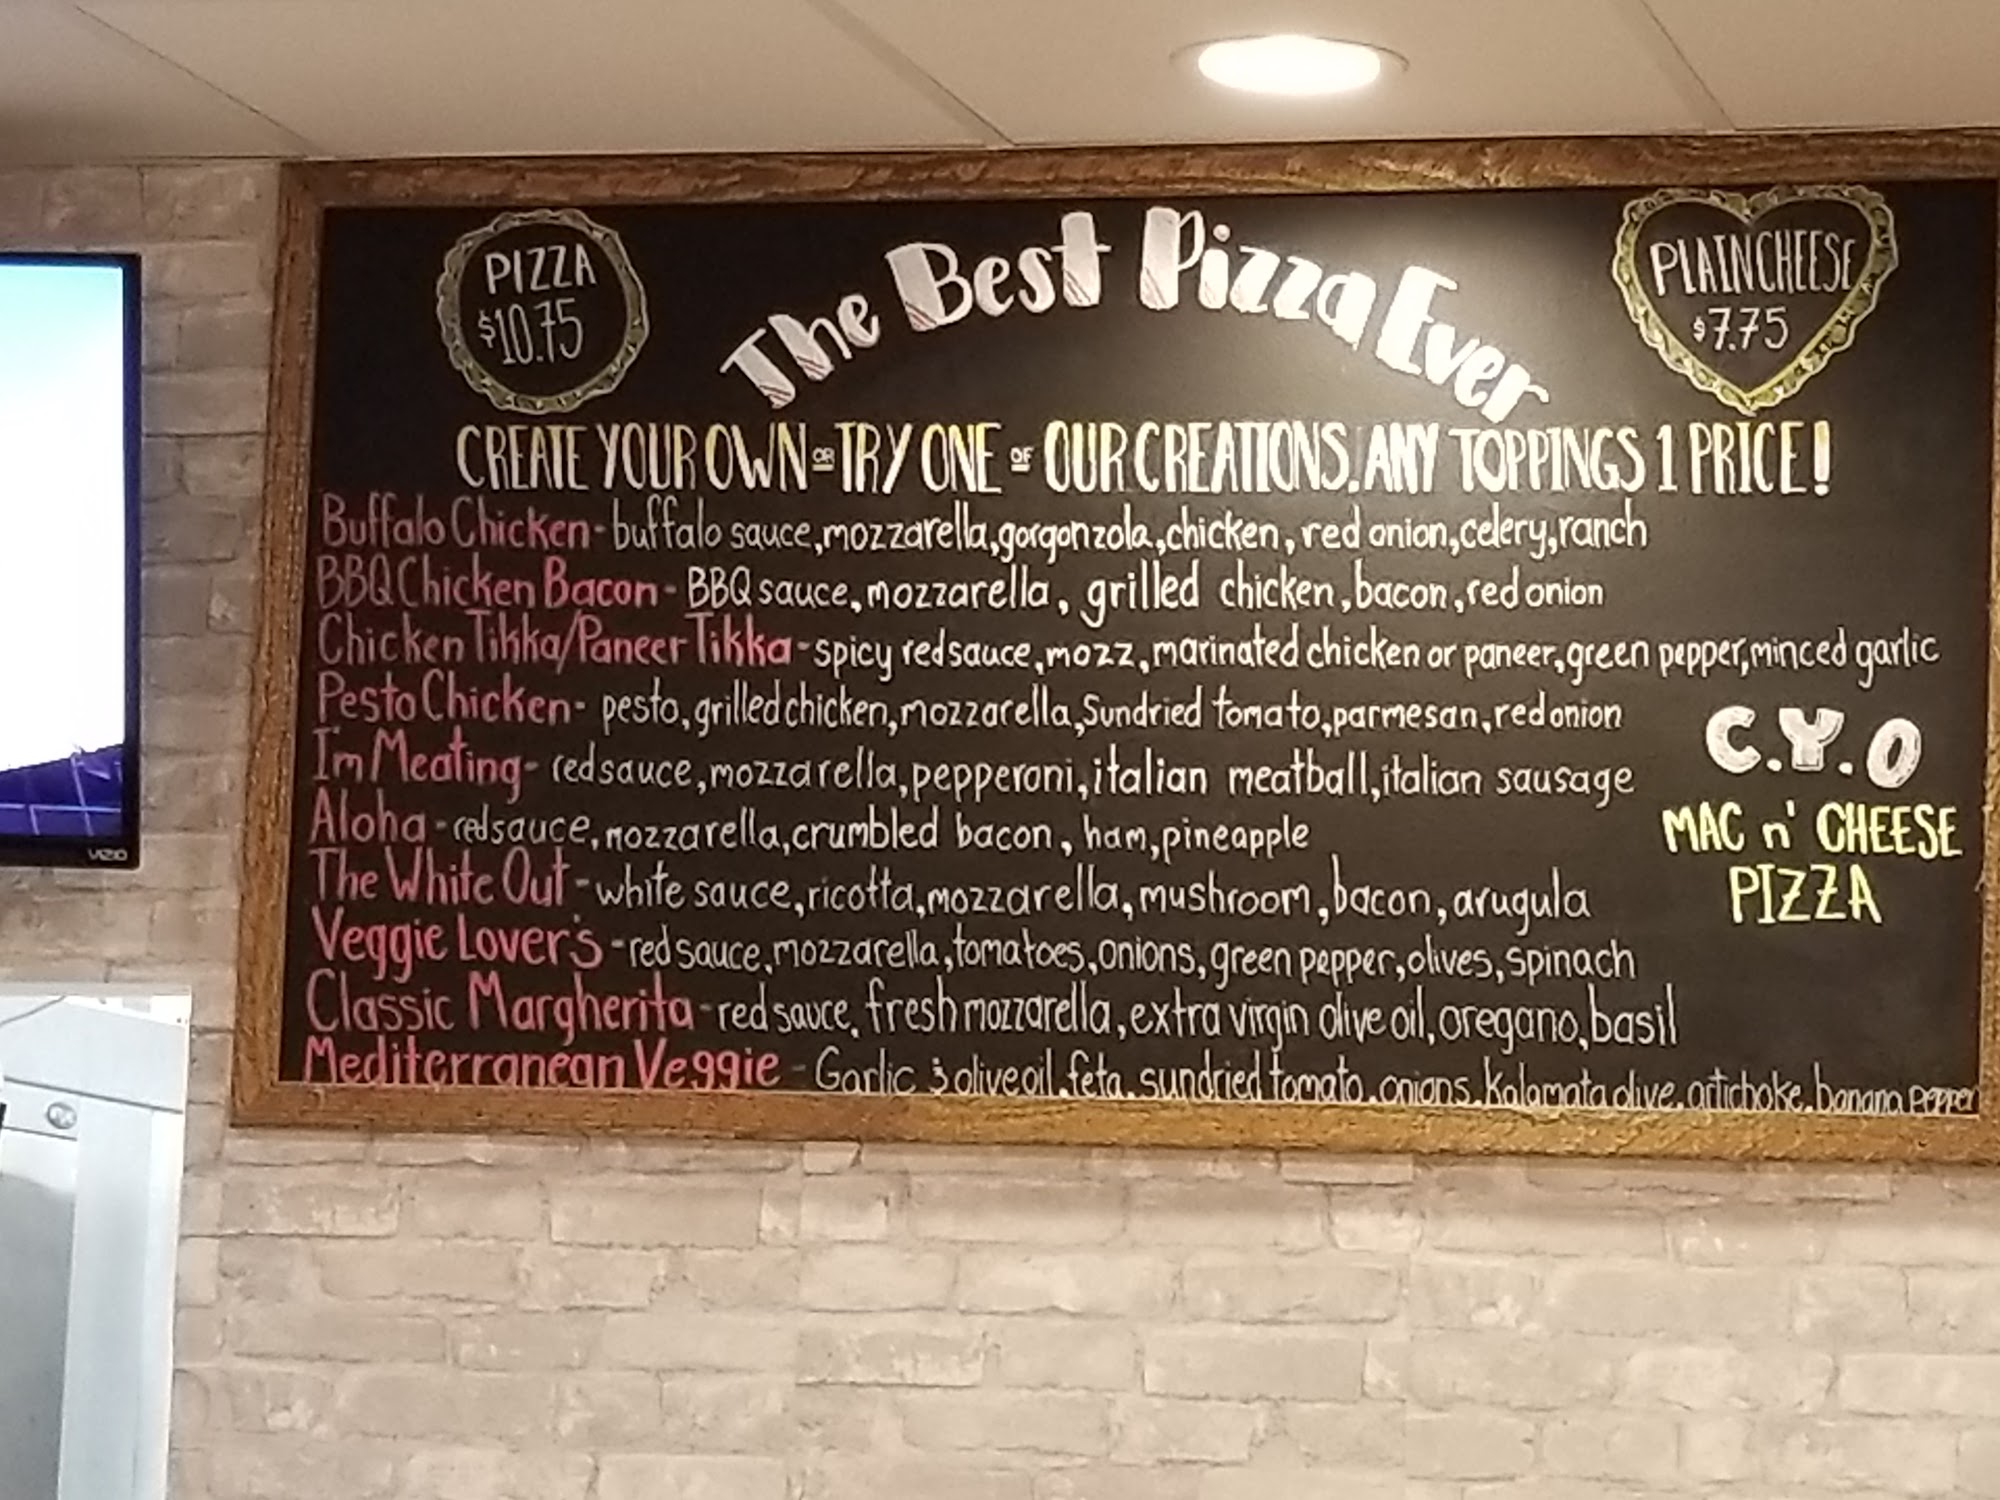 PIZZA
$10.75
The Best Pizza Ever
PLAIN CHEESE
$7.75
CREATE YOUR OWN OR TRY ONE OF OUR CREATIONS. ANY TOPPINGS 1 PRICE!
Buffalo Chicken - buffalo sauce, mozzarella, gorgonzola, chicken, red onion, celery, ranch
BBQ Chicken Bacon - BBQ sauce, mozzarella, grilled chicken, bacon, red onion
Chicken Tikka/Paneer Tikka - spicy red sauce, mozz, marinated chicken or paneer, green pepper, minced garlic
Pesto Chicken - pesto, grilled chicken, mozzarella, Sundried tomato, parmesan, red onion
I'm Meating - red sauce, mozzarella, pepperoni, italian meatball, italian sausage
Aloha - red sauce, mozzarella, crumbled bacon, ham, pineapple
The White Out - white sauce, ricotta, mozzarella, mushroom, bacon, arugula
Veggie Lover's - red sauce, mozzarella, tomatoes, onions, green pepper, olives, spinach
Classic Margherita - red sauce, fresh mozzarella, extra virgin olive oil, oregano, basil
Mediterranean Veggie - Garlic & olive oil, feta, sundried tomato, onions, Kalamata olive, artichoke, banana pepper
C.Y.O
MAC n' CHEESE
PIZZA
VIZIO